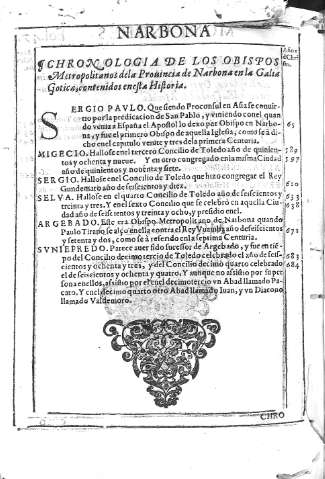 NARBONA
Año de Christo.
¶CHRONOLOGIA DE LOS OBISPOS
Metropolitanos de la Prouincia de Narbona en la Galia
Gotica, contenidos en esta Historia.
SERGIO PAVLO. Que siendo Proconsul en Asia se conuirtio
por la predicacion de San Pablo, y viniendo con el quando
venia a España el Apostol lo dexo por Obispo en Narbona,
y fue el primero Obispo de aquella Iglesia, como se a dicho
en el capitulo veinte y tres de la primera Centuria.
65
MIGECIO. Hallose en el tercero Concilio de Toledo año de quinientos
y ochenta y nueue. Y en otro congregado en la misma Ciudad
año de quinientos y nouenta y siete.
589
597
SERGIO. Hallose en el Concilio de Toledo que hizo congregar el Rey
Gundemaro año de seiscientos y diez.
610
SELVA. Hallose en el quarto Concilio de Toledo año de seiscientos y
treinta y tres. Y en el sexto Concilio que se celebro en aquella Ciudad
año de seiscientos y treinta y ocho, y presidio en el.
633
638
ARGEBADO. Este era Obispo Metropolitano de Narbona quando
Paulo Tirano se alço en ella contra el Rey Vuamba año de seiscientos
y setenta y dos, como se a referido en la septima Centuria.
672
SVNIEFREDO. Parece auer sido sucesor de Argebado, y fue en tiempo
del Concilio decimo tercio de Toledo celebrado el año de seiscientos
y ochenta y tres, y del Concilio decimo quarto celebrado
el de seiscientos y ochenta y quatro. Y aunque no asistio por su persona
en ellos, asistio por el en el decimo tercio vn Abad llamado Pacato.
Y en el decimo quarto otro Abad llamado Iuan, y vn Diacono
llamado Valdemoro.
683
684
CHRO